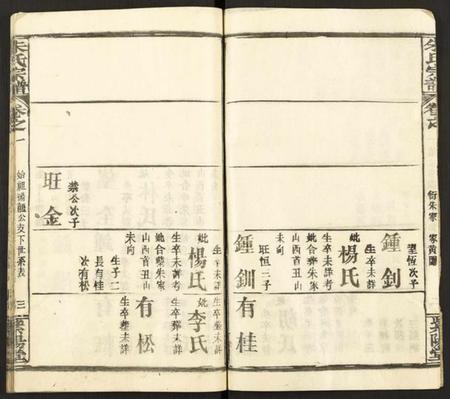 朱氏宗譜
卷之
衍朱家
鍾釗
望恆次子
生卒未詳
妣楊氏
生卒未詳考
妣合葬朱家
山西首丑山
未向
鍾釧
旺恒三子
有桂
生卒未詳
妣楊氏
生卒未詳考
妣合葬朱家
山西首丑山
未向
生子二
長有桂
次有松
妣李氏
生卒葬未詳
有松
生卒葬未詳
旺金
榮公次子
朱氏宗譜
卷之一
始祖
公支下世系表
三